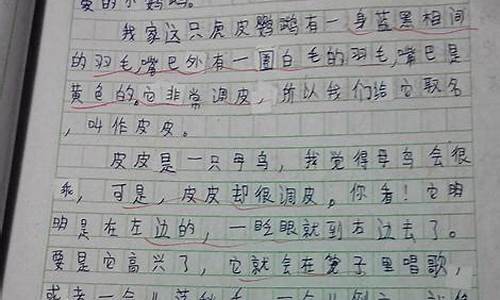 爱的小鹦鹉。
我家这只虎皮鹦鹉有一身蓝黑相间
的羽毛,嘴巴外有一圈白毛的羽毛,嘴巴是
黄色的。它非常调皮,所以我们给它取名
,叫作皮皮。
皮皮是一只母鸟,我觉得母鸟会很
乖,可是,皮皮却很调皮。你看!它明
明是在左边的,一眨眼就到右边去了。
要是它高兴了,它就会在笼子里唱歌,